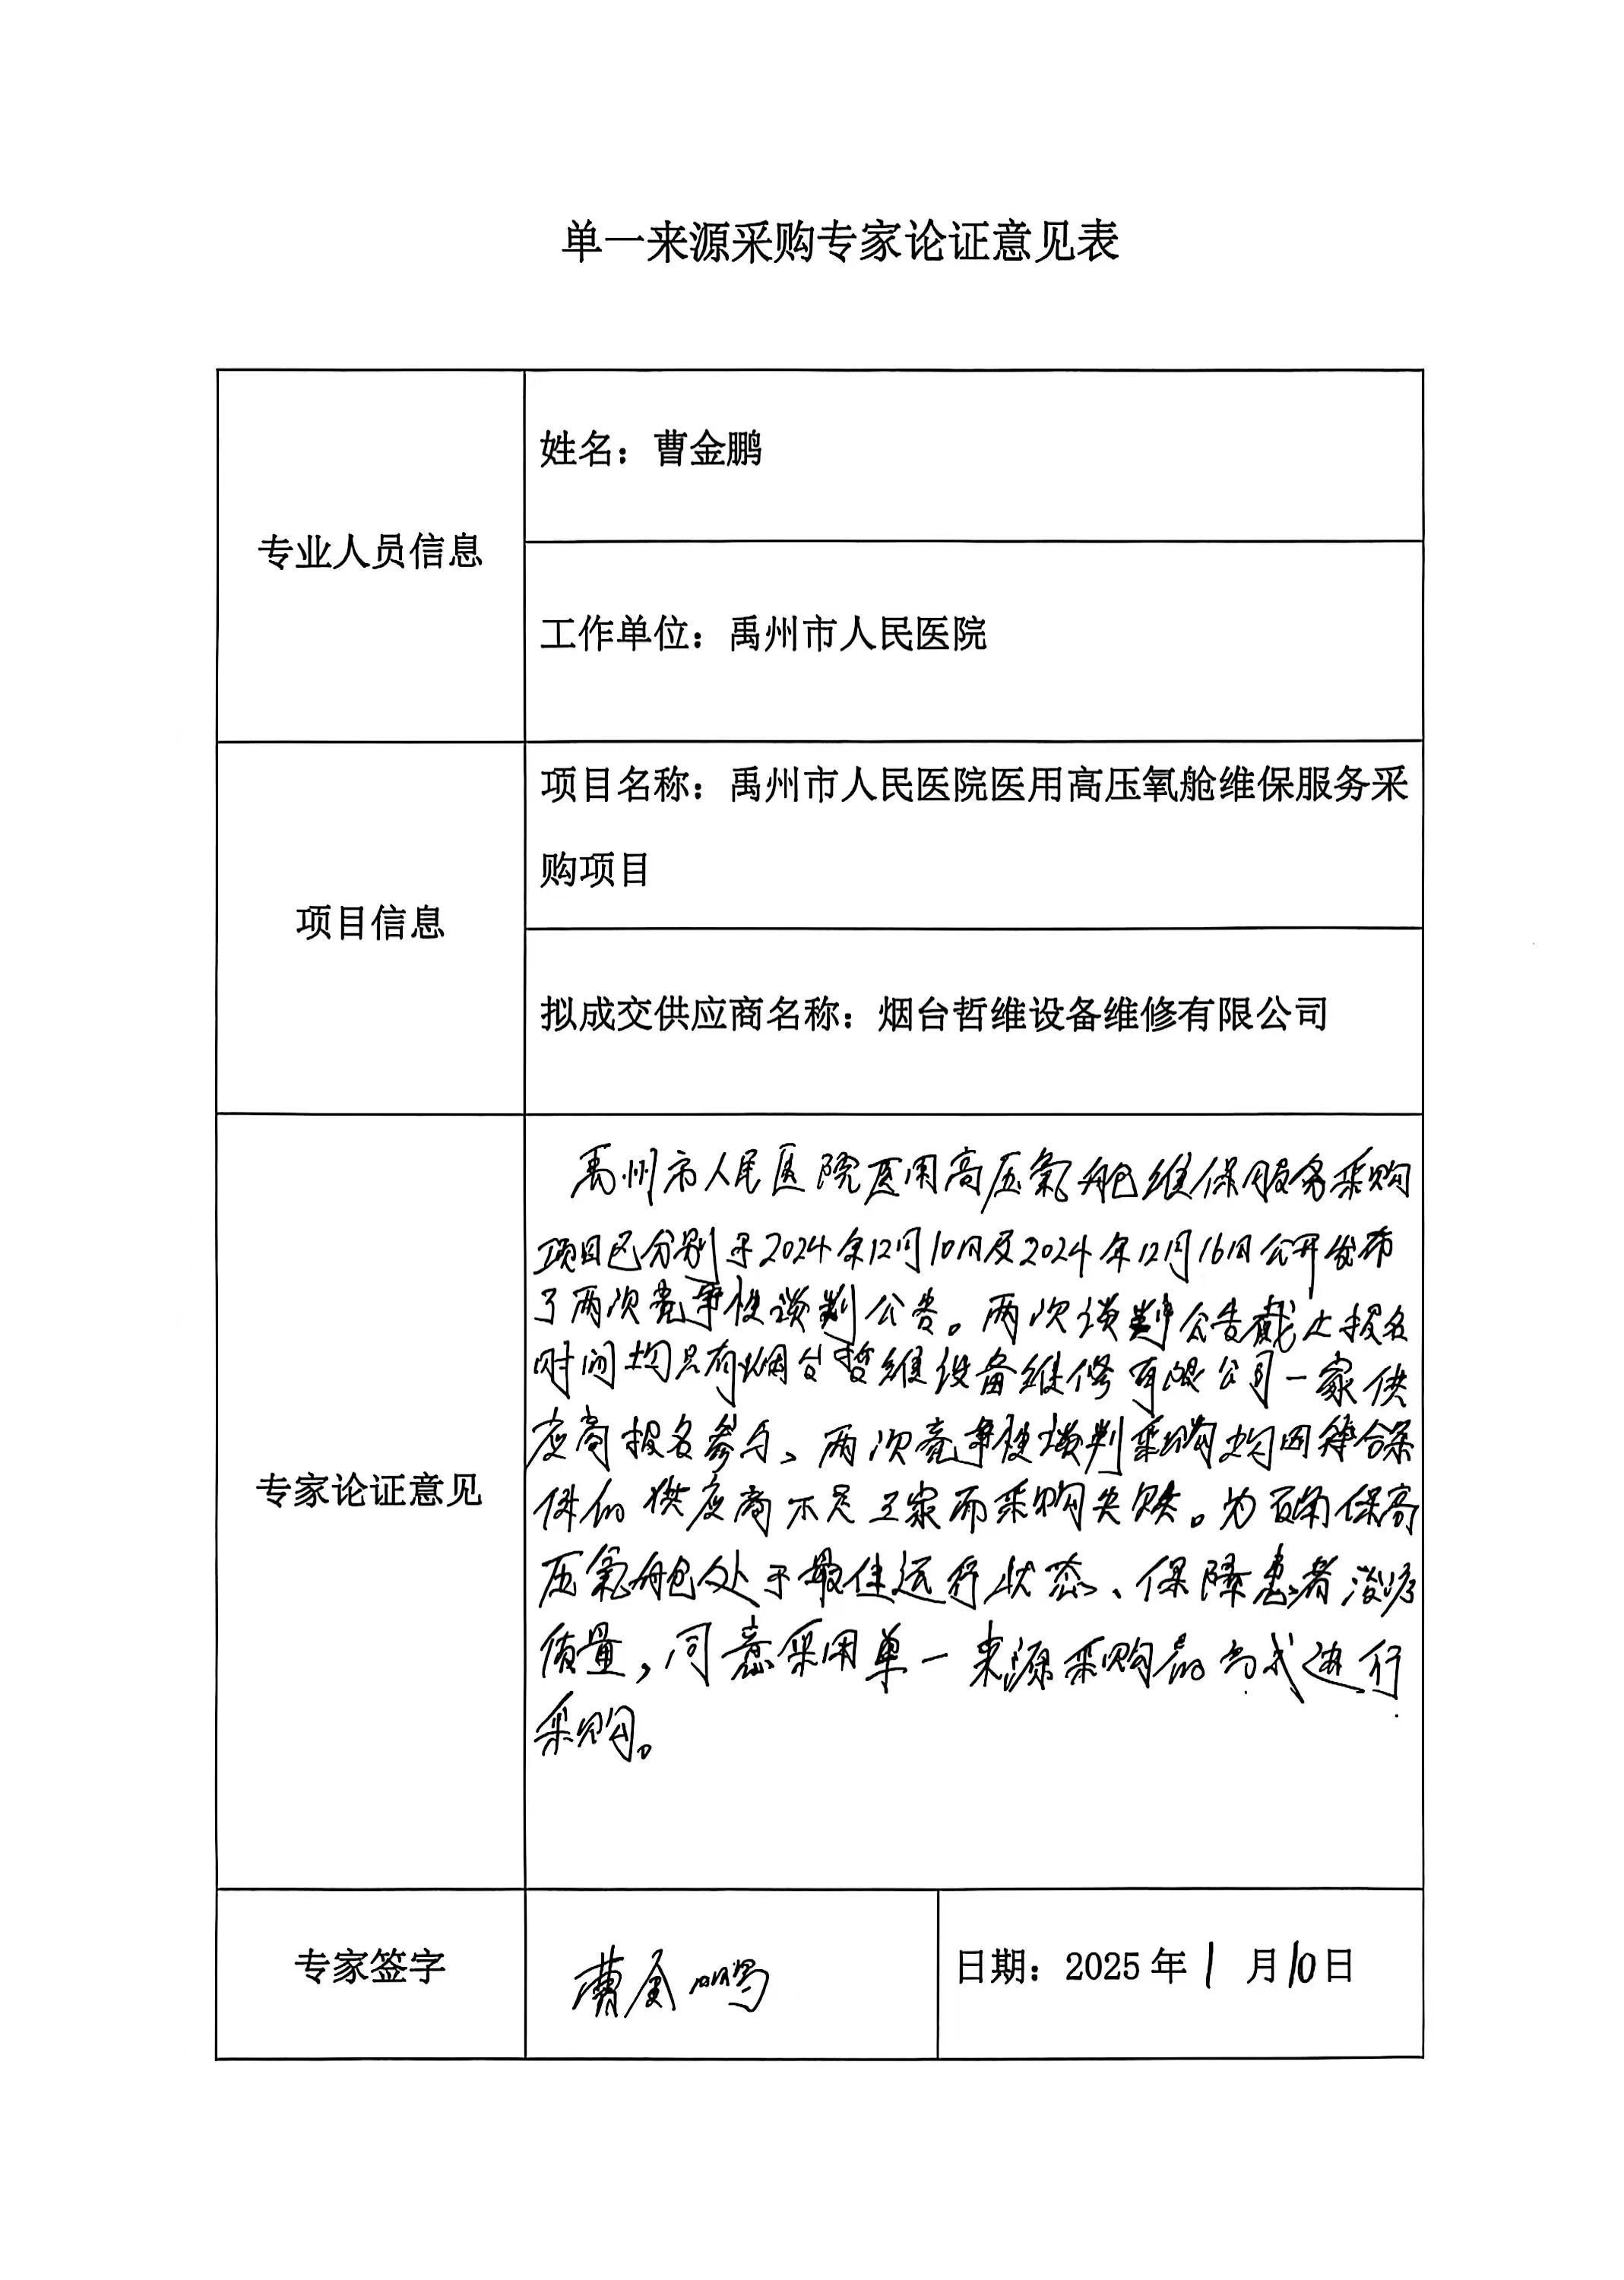 单一来源采购专家论证意见表
专业人员信息
姓名：曹金鹏
工作单位：禹州市人民医院
项目信息
项目名称：禹州市人民医院医用高压氧舱维保服务采
购项目
拟成交供应商名称：烟台哲维设备维修有限公司
专家论证意见
禹州市人民医院医用高压氧舱维保服务采购
项目已分别于2024年12月10日及2024年12月16日公开发布
了两次竞争性谈判公告。两次谈判公告截止报名
时间均只有烟台哲维设备维修有限公司一家供
应商报名参与、两次竞争性谈判采购均因符合条
件的供应商不足三家而采购失败。为确保高
压氧舱处于最佳运行状态、保障患者治疗
质量，同意采用单一来源采购的方式进行
采购。
专家签字
曹金鹏
日期：2025年1月10日